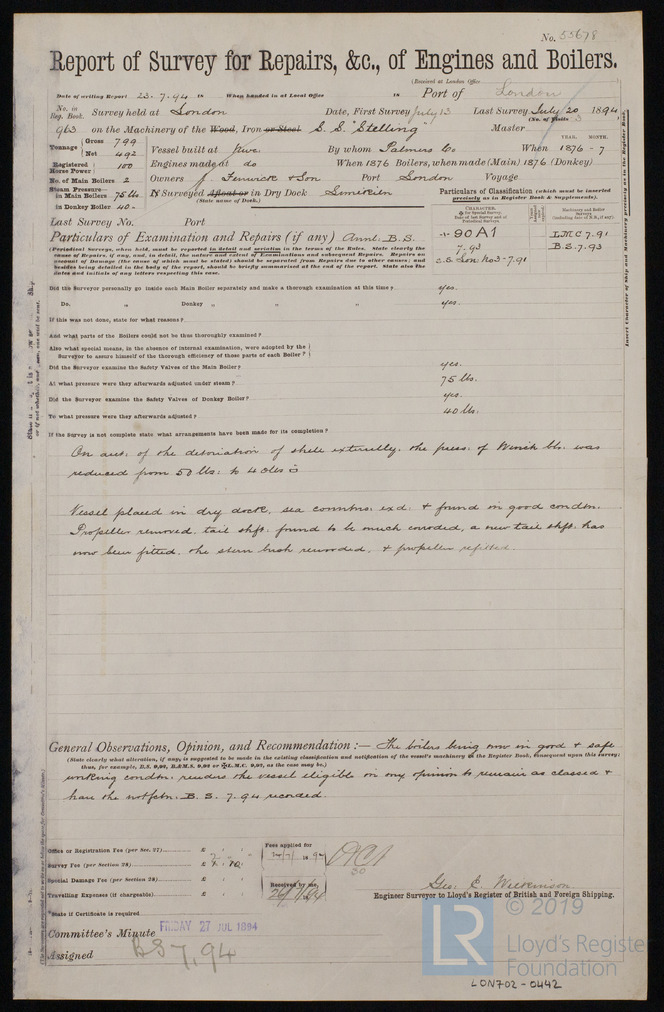 No. 55678
Report of Survey for Repairs, &c., of Engines and Boilers.
(Received at London Office
Date of writing Report 23.7.94 18 When handed in at Local Office 18 Port of London
No. in Reg. Book. Survey held at London Date, First Survey July 13 Last Survey July 20 1894
(No. of Visits 3
963 on the Machinery of the Wood, Iron or Steel S.S. "Stelling" Master
Tonnage Gross 799 Net 492 Vessel built at By whom Palmers Co. When 1876 - 7
YEAR. MONTH.
Registered Horse Power 100 Engines made at do When 1876 Boilers, when made (Main) 1876 (Donkey)
No. of Main Boilers 2 Owners J. Fenwick & Son Port London Voyage
Steam Pressure in Main Boilers 75 lbs If Surveyed Afloat or in Dry Dock
(State name of Dock.)
in Donkey Boiler 40 -
Particulars of Classification (which must be inserted precisely as in Register Book & Supplements).
Last Survey No. Port
90A1 LMC 7.91
7.93 B.S. 7.93
S.S. Lon No3-7.91
Particulars of Examination and Repairs (if any) Annl: B.S.
(Periodical Surveys, when held, must be reported in detail and seriatim in the terms of the Rules. State clearly the
cause of Repairs, if any, and, in detail, the nature and extent of Examinations and subsequent Repairs. Repairs on
account of Damage (the cause of which must be stated) should be separated from Repairs due to other causes; and
besides being detailed in the body of the report, should be briefly summarised at the end of the report. State also the
dates and initials of any letters respecting this case.
Did the Surveyor personally go inside each Main Boiler separately and make a thorough examination at this time? yes.
Do. " Donkey " " " yes.
If this was not done, state for what reasons?
And what parts of the Boilers could not be thus thoroughly examined?
Also what special means, in the absence of internal examination, were adopted by the
Surveyor to assure himself of the thorough efficiency of those parts of each Boiler?
Did the Surveyor examine the Safety Valves of the Main Boiler? yes.
At what pressure were they afterwards adjusted under steam? 75 lbs.
Did the Surveyor examine the Safety Valves of Donkey Boiler? yes.
To what pressure were they afterwards adjusted? 40 lbs:
If the Survey is not complete state what arrangements have been made for its completion?
On acct: of the detoriation of shell externally. the press: of Winch blr. was
reduced from 50 lbs: to 40 lbs
Vessel placed in dry dock, sea connctns: exd: & found in good condtn.
Propeller removed, tail shft: found to be much corroded, a new tail shft: has
now been fitted. the stern bush rewooded, & propeller refitted.
General Observations, Opinion, and Recommendation :— The boilers being now in good & safe
(State clearly what alteration, if any, is suggested to be made in the existing classification and notification of the vessel's machinery in the Register Book, consequent upon this survey;
thus, for example, B.S. 9,90, B.&M.S. 9,90 or ✠L.M.C. 9,90, as the case may be.)
working condtn: renders the vessel eligible in my opinion to remain as classed &
have the notfctn: B.S. 7.94 recorded.
Office or Registration Fee (per Sec. 27) £
Survey Fee (per Section 28) £
Special Damage Fee (per Section 28) £
Travelling Expenses (if chargeable) £
Fees applied for
Received by me,
Geo. E. Wilkinson
Engineer Surveyor to Lloyd's Register of British and Foreign Shipping.
State if Certificate is required
Committee's Minute FRIDAY 27 JUL 1894
Assigned BS 7,94
© 2019
LR
Lloyd's Register
Foundation
LON702-0442